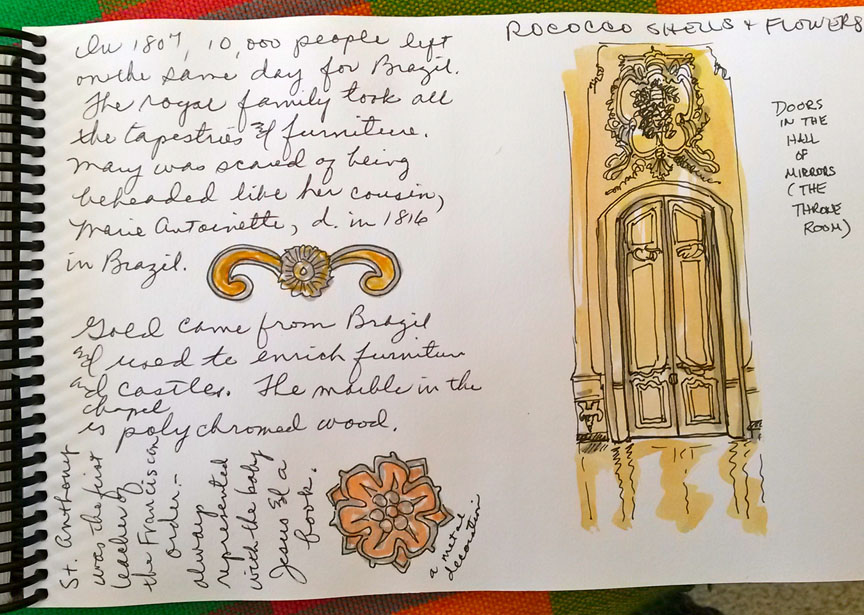 In 1807, 10,000 people left
on the same day for Brazil.
The royal family took all
the tapestries & furniture.
Mary was scared of being
beheaded like her cousin,
Marie Antoinette, d. in 1816
in Brazil.
Gold came from Brazil
and used to enrich furniture
and castles. The marble in the
chapel
is polychromed wood.
St. Anthony
was the first
teacher of
the Franciscan
order-
always
represented
with the baby
Jesus & a
book.
a metal
decoration
ROCOCCO SHELLS & FLOWERS
DOORS
IN THE
HALL
OF
MIRRORS
(THE
THRONE
ROOM)